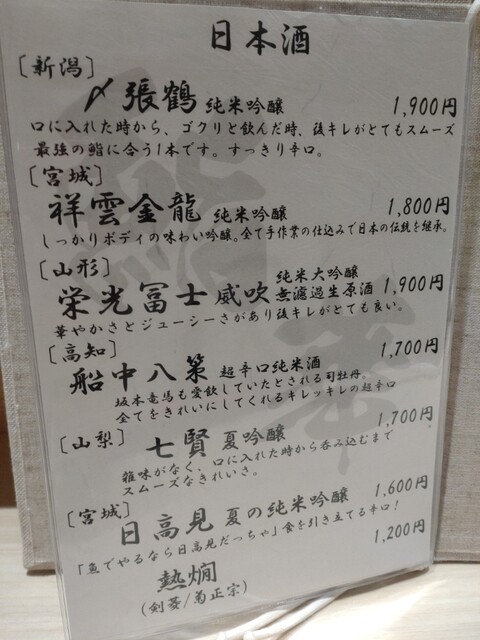 日本酒
〔新潟〕
〆張鶴 純米吟醸 1,900円
口に入れた時から、ゴクリと飲んだ時、後キレがとてもスムーズ
最強の鮨に合う1本です。すっきり辛口。
〔宮城〕
祥雲金龍 純米吟醸 1,800円
しっかりボディの味わい吟醸。全て手作業の仕込みで日本の伝統を継承。
〔山形〕
栄光冨士 威吹 純米大吟醸 無濾過生原酒 1,900円
華やかさとジューシーさがあり後キレがとても良い。
〔高知〕
船中八策 超辛口純米酒 1,700円
坂本竜馬も愛飲していたとされる司牡丹。
全てをきれいにしてくれるキレッキレの超辛口
〔山梨〕
七賢 夏吟醸 1,700円
雑味がなく、口に入れた時から呑み込むまで
スムーズなきれいさ。
〔宮城〕
日高見 夏の純米吟醸 1,600円
「魚でやるなら日高見だっちゃ」食を引き立てる辛口!
熱燗 1,200円
(剣菱/菊正宗)